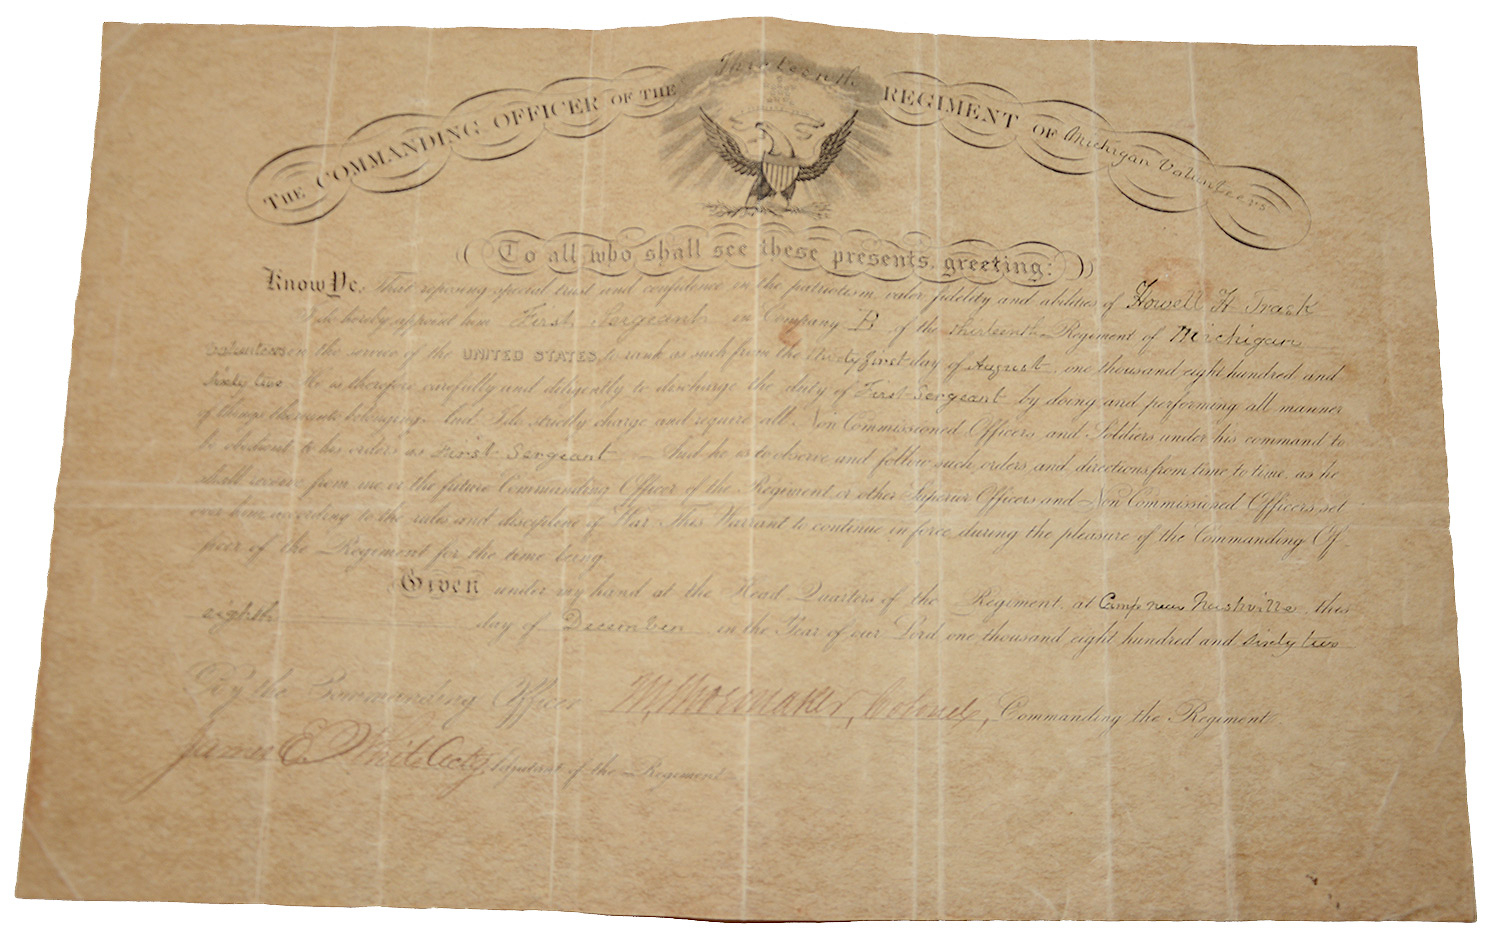 THE COMMANDING OFFICER OF THE Thirteenth REGIMENT OF Michigan Volunteers
To all who shall see these presents, greeting:
Know Ye, That reposing special trust and confidence in the patriotism, valor, fidelity and abilities of Howell H Trask
I do hereby appoint him First Sergeant in Company B of the thirteenth Regiment of Michigan
Volunteers in the service of the UNITED STATES, to rank as such from the twenty first day of August, one thousand eight hundred and
sixty two He is therefore carefully and diligently to discharge the duty of First Sergeant by doing and performing all manner
of things thereunto belonging. And I do strictly charge and require all Non Commissioned Officers and Soldiers under his command to
be obedient to his orders as First Sergeant And he is to observe and follow such orders and directions from time to time, as he
shall receive from me or the future Commanding Officer of the Regiment or other Superior Officers and Non Commissioned Officers set
over him according to the rules and discipline of War. This Warrant to continue in force during the pleasure of the Commanding Of-
ficer of the Regiment for the time being.
Given under my hand at the Head Quarters of the Regiment, at Camp near Nashville, this
eighth day of December in the Year of our Lord one thousand eight hundred and sixty two
By the Commanding Officer M, Shoemaker, Colonel, Commanding the Regiment.
James E White Actg Adjutant of the Regiment